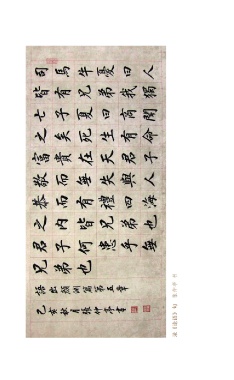 司馬牛憂曰人
皆有兄弟我獨
亡子夏曰商聞
之矣死生有命
富貴在天君子
敬而無失與人
恭而有禮四海
之內皆兄弟也
君子何患乎無
兄弟也
語出顏淵篇第五章
己亥秋月仲亭書
录《论语》句